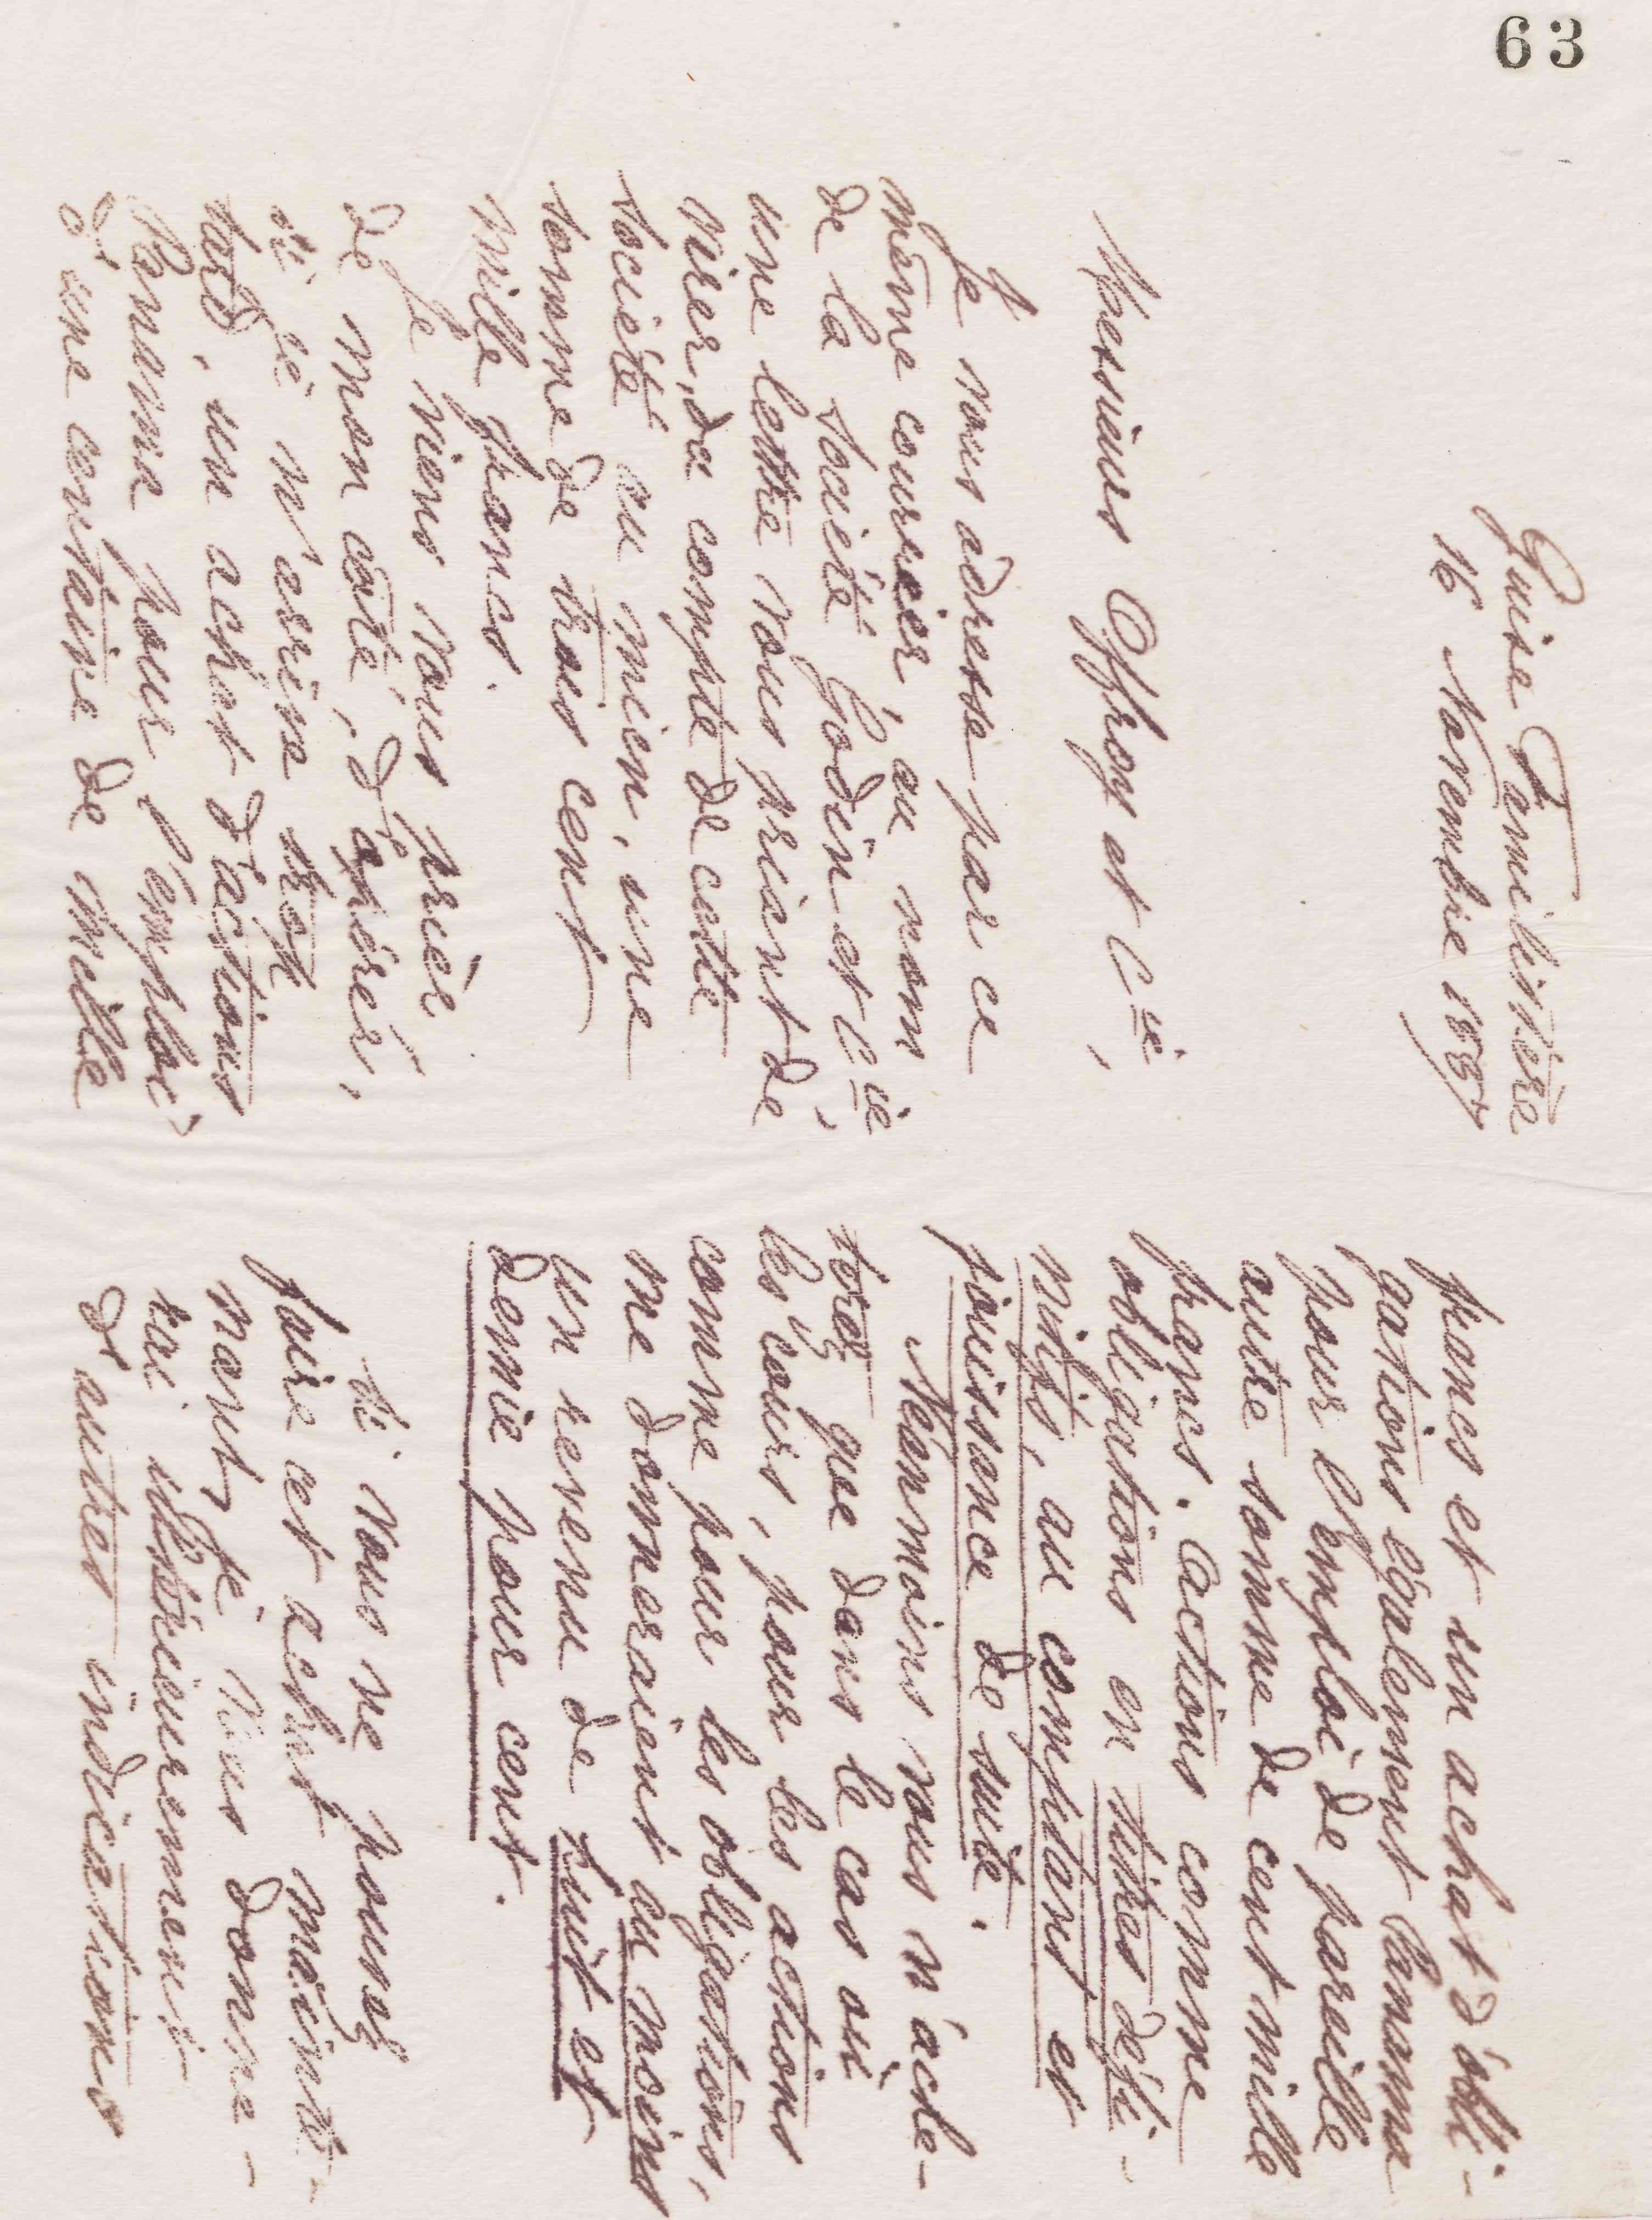 63
Guise Familistère
16 Novembre 1887
Messieurs Offroy et Cie,
Je vous adresse par ce
même courrier, au nom
de la Société Godin et Cie,
une lettre vous priant de
virer, du compte de cette
Société au mien, une
somme de trois cent
mille francs.
Je viens vous prier
de mon côté, d'opérer,
si je n'arrive trop
tard, un achat d'actions
Panama pour l'emploi
d'une centaine de mille
francs et un achat d'obli-
gations également Panama
pour l'emploi de pareille
autre somme de cent mille
francs. Actions comme
obligations en titres défi-
nitifs, au comptant et
jouissance de suite.
Néanmoins vous n'achè-
terez que dans le cas où
les cours, pour les actions
comme pour les obligations,
me donneraient au moins
un revenu de huit et
demie pour cent.
Si vous ne pouvez
faire cet achat mainte-
nant, je vous donne-
rai ultérieurement
d'autres indications